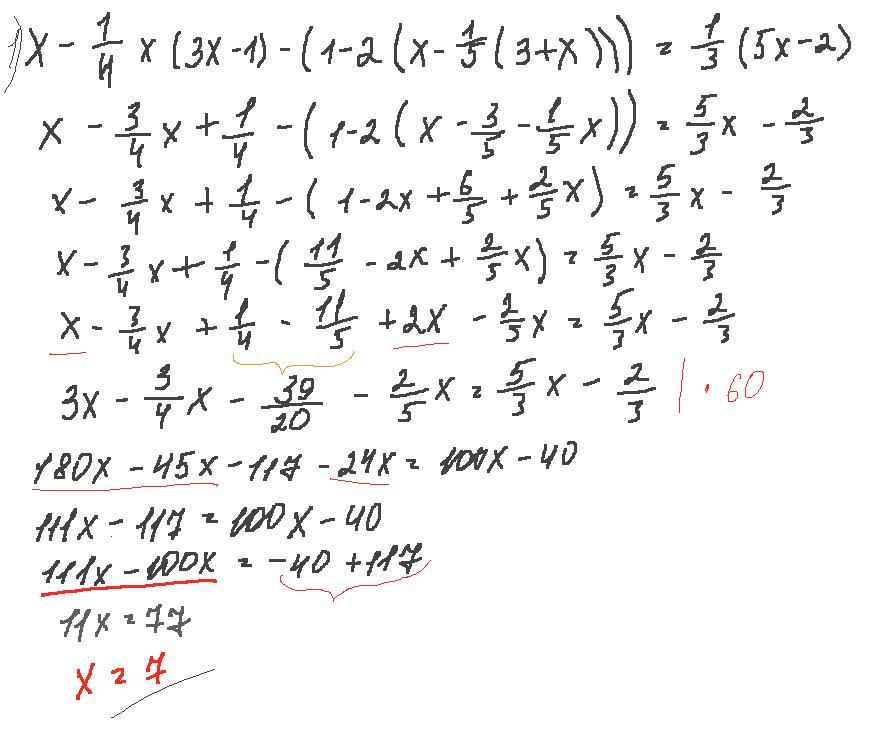 1) x - 1/4 x (3x-1) - (1-2(x - 1/5(3+x))) = 1/3 (5x-2)
x - 3/4 x + 1/4 - (1-2(x - 3/5 - 1/5 x)) = 5/3 x - 2/3
x - 3/4 x + 1/4 - (1-2x + 6/5 + 2/5 x) = 5/3 x - 2/3
x - 3/4 x + 1/4 - (11/5 - 2x + 2/5 x) = 5/3 x - 2/3
x - 3/4 x + 1/4 - 11/5 + 2x - 2/5 x = 5/3 x - 2/3
3x - 3/4 x - 39/20 - 2/5 x = 5/3 x - 2/3 | · 60
180x - 45x - 117 - 24x = 100x - 40
111x - 117 = 100x - 40
111x - 100x = -40 + 117
11x = 77
x = 7